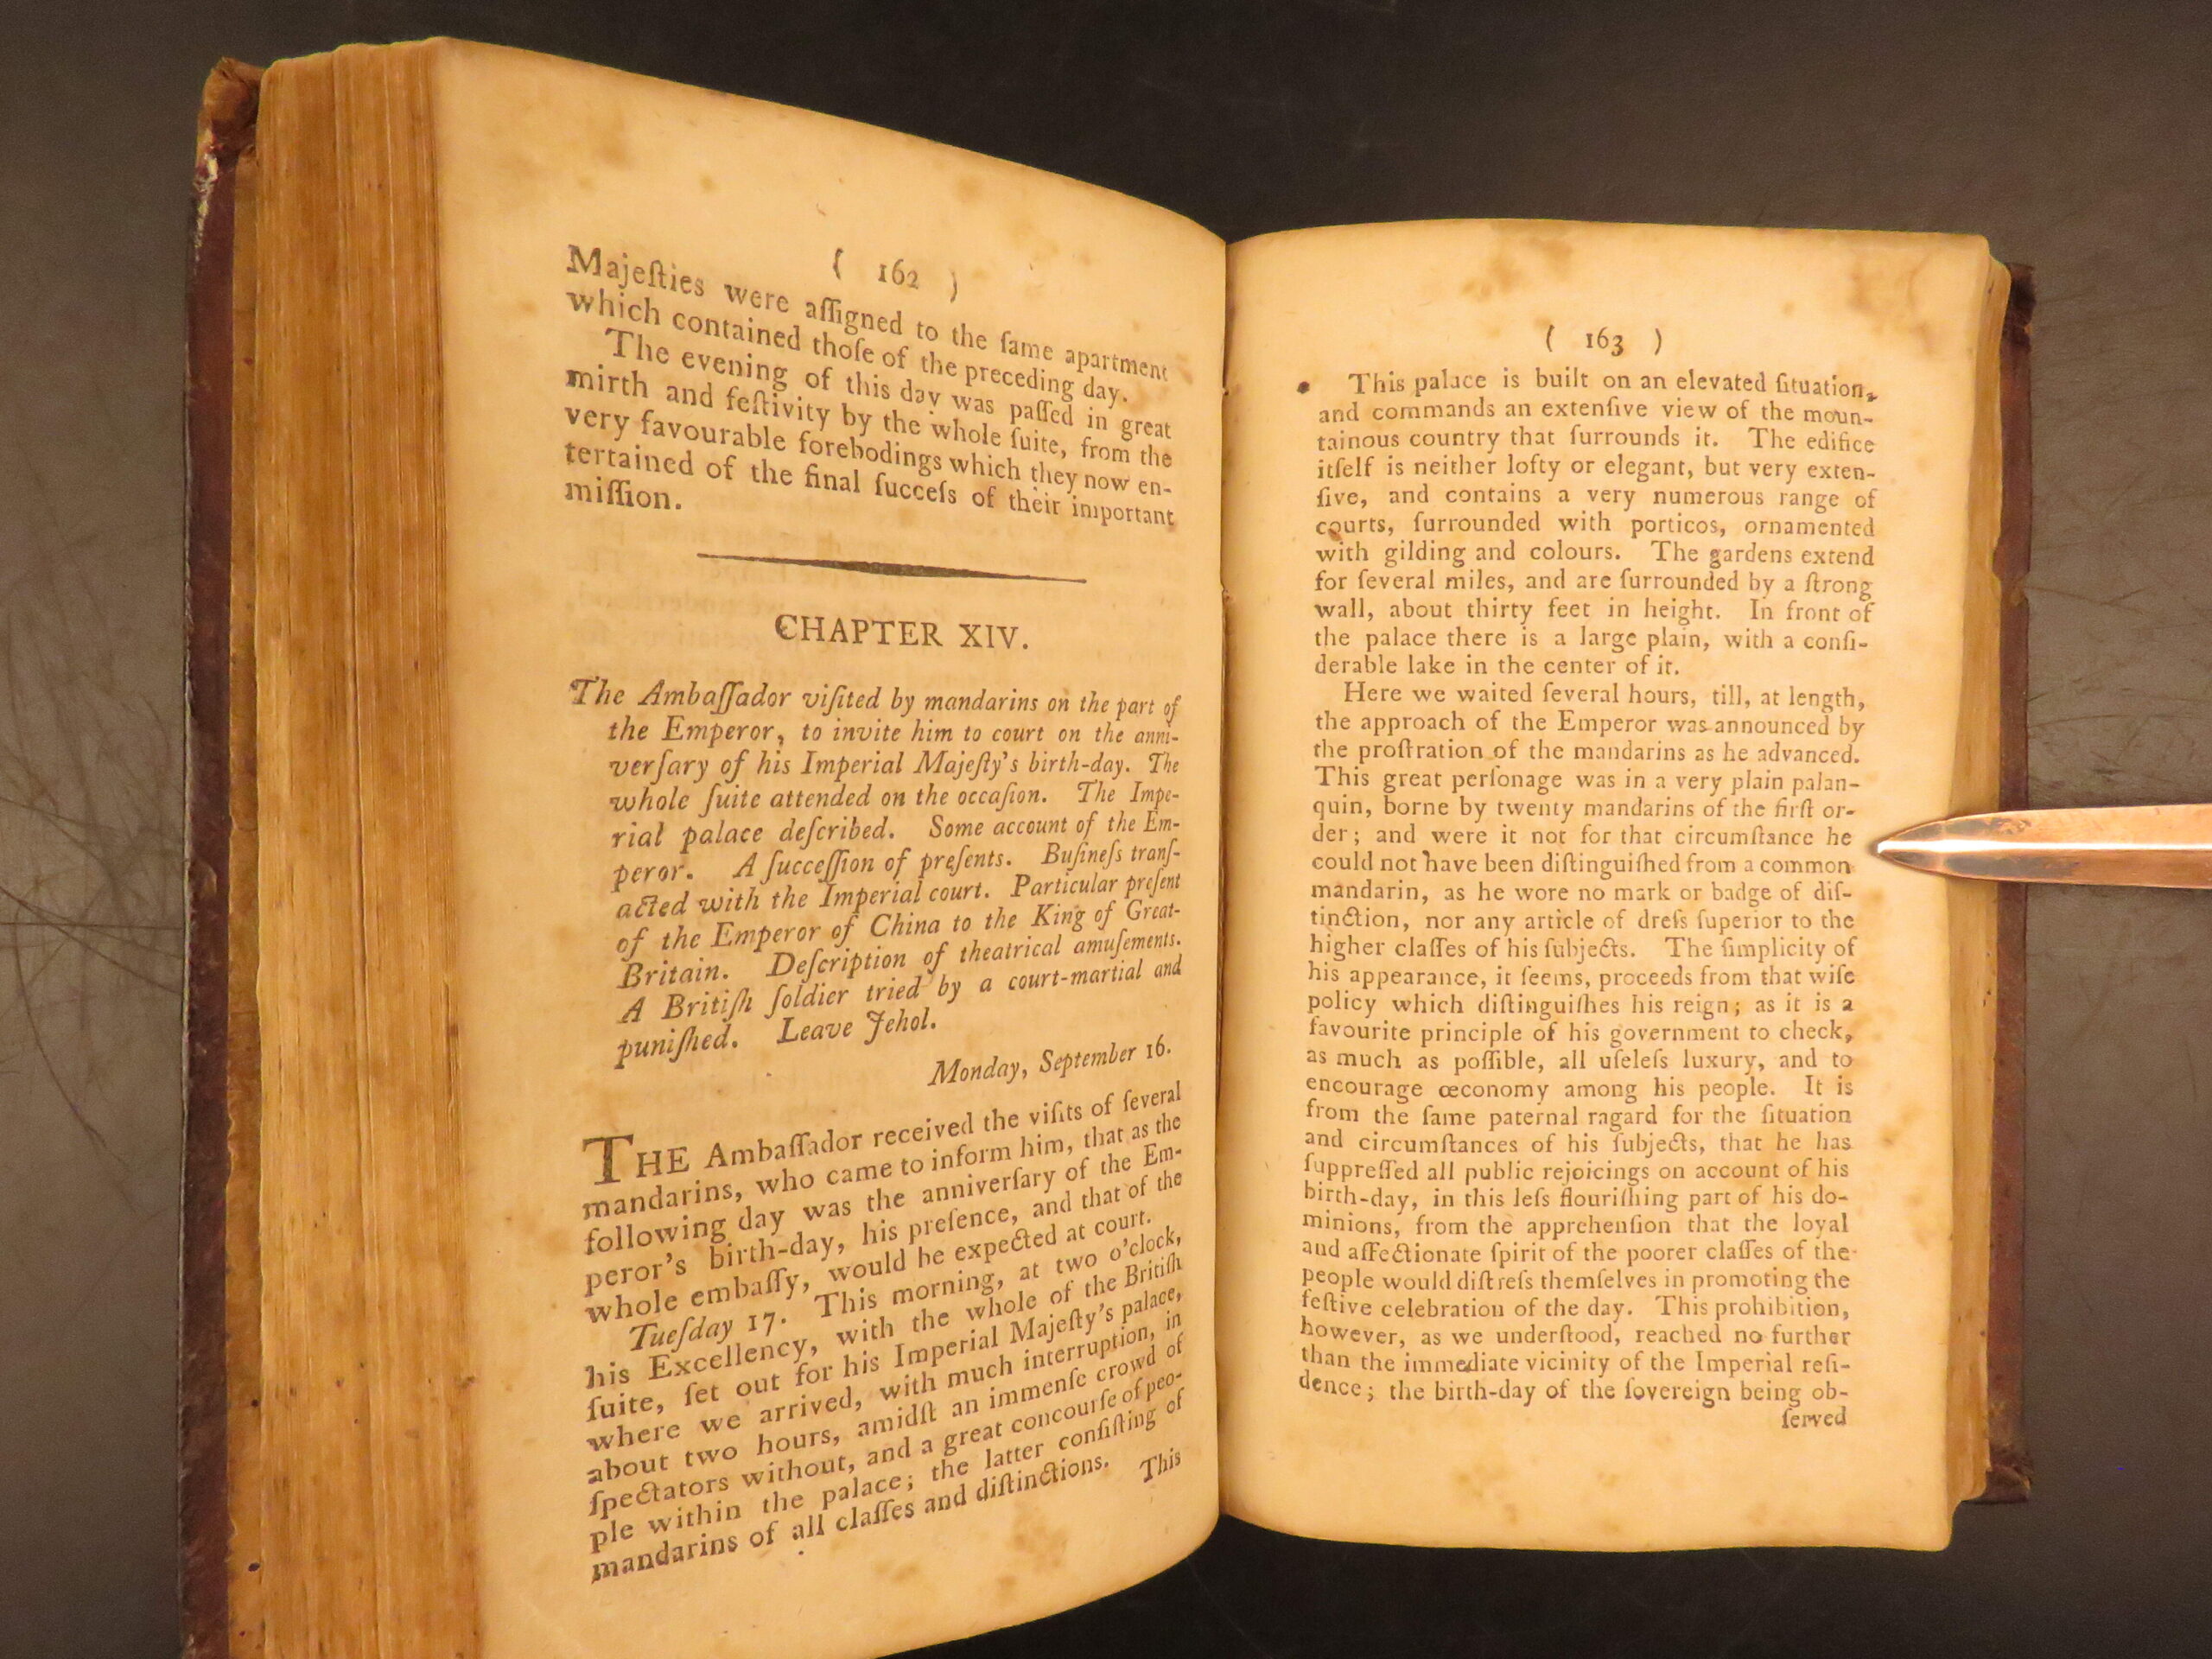 ( 162 )
Majeſties were aſſigned to the ſame apartment
which contained thoſe of the preceding day.
The evening of this day was paſſed in great
mirth and feſtivity by the whole ſuite, from the
very favourable forebodings which they now en-
tertained of the final ſucceſs of their important
miſſion.
CHAPTER XIV.
The Ambaſſador viſited by mandarins on the part of
the Emperor, to invite him to court on the anni-
verſary of his Imperial Majeſty's birth-day. The
whole ſuite attended on the occaſion. The Impe-
rial palace deſcribed. Some account of the Em-
peror. A ſucceſſion of preſents. Buſineſs tranſ-
acted with the Imperial court. Particular preſent
of the Emperor of China to the King of Great-
Britain. Deſcription of theatrical amuſements.
A Britiſh ſoldier tried by a court-martial and
puniſhed. Leave Jehol.
Monday, September 16.
THE Ambaſſador received the viſits of ſeveral
mandarins, who came to inform him, that as the
following day was the anniverſary of the Em-
peror's birth-day, his preſence, and that of the
whole embaſſy, would be expected at court.
Tueſday 17. This morning, at two o'clock,
his Excellency, with the whole of the Britiſh
ſuite, ſet out for his Imperial Majeſty's palace,
where we arrived, with much interruption, in
about two hours, amidſt an immenſe crowd of
ſpectators without, and a great concourſe of peo-
ple within the palace; the latter conſiſting of
mandarins of all claſſes and diſtinctions. This
( 163 )
This palace is built on an elevated ſituation,
and commands an extenſive view of the moun-
tainous country that ſurrounds it. The edifice
itſelf is neither lofty or elegant, but very exten-
ſive, and contains a very numerous range of
courts, ſurrounded with porticos, ornamented
with gilding and colours. The gardens extend
for ſeveral miles, and are ſurrounded by a ſtrong
wall, about thirty feet in height. In front of
the palace there is a large plain, with a conſi-
derable lake in the center of it.
Here we waited ſeveral hours, till, at length,
the approach of the Emperor was announced by
the proſtration of the mandarins as he advanced.
This great perſonage was in a very plain palan-
quin, borne by twenty mandarins of the firſt or-
der; and were it not for that circumſtance he
could not have been diſtinguiſhed from a common
mandarin, as he wore no mark or badge of diſ-
tinction, nor any article of dreſs ſuperior to the
higher claſſes of his ſubjects. The ſimplicity of
his appearance, it ſeems, proceeds from that wiſe
policy which diſtinguiſhes his reign; as it is a
favourite principle of his government to check,
as much as poſſible, all uſeleſs luxury, and to
encourage œconomy among his people. It is
from the ſame paternal ragard for the ſituation
and circumſtances of his ſubjects, that he has
ſuppreſſed all public rejoicings on account of his
birth-day, in this leſs flouriſhing part of his do-
minions, from the apprehenſion that the loyal
and affectionate ſpirit of the poorer claſſes of the
people would diſtreſs themſelves in promoting the
feſtive celebration of the day. This prohibition,
however, as we underſtood, reached no further
than the immediate vicinity of the Imperial reſi-
dence; the birth-day of the ſovereign being ob-
ſerved